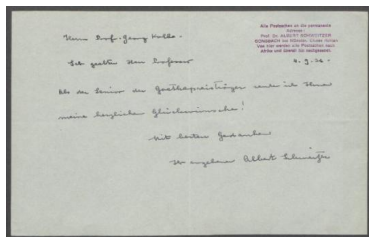 Alle Postsachen an die permanente
Adresse:
Prof. Dr. ALBERT SCHWEITZER
GÜNSBACH bei Münster, Elsass
Von hier werden alle Postsachen nach
Afrika und überall hin nachgesandt
Herrn Prof. Georg Kolbe.
Sehr geehrter Herr Professor
Als der Senior der Goethepreisträger sende ich Ihnen
meine herzlichen Glückwünsche!
Mit besten Gedanken
Ihr ergebener Albert Schweitzer